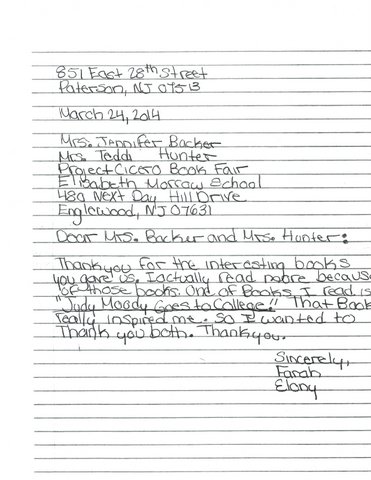 851 East 28th Street
Paterson, NJ 07513
March 24, 2014
Mrs. Jennifer Backer
Mrs. Teddi Hunter
Project Cicero Book Fair
Elisabeth Morrow School
480 Next Day Hill Drive
Englewood, NJ 07631
Dear Mrs. Backer and Mrs. Hunter:
Thank you for the interesting books
you gave us. I actually read more because
of those books. One of Books I read is
"Judy Moody Goes to College!" That Book
really inspired me. So I wanted to
Thank you both. Thank you.
Sincerely,
Farah
Elony